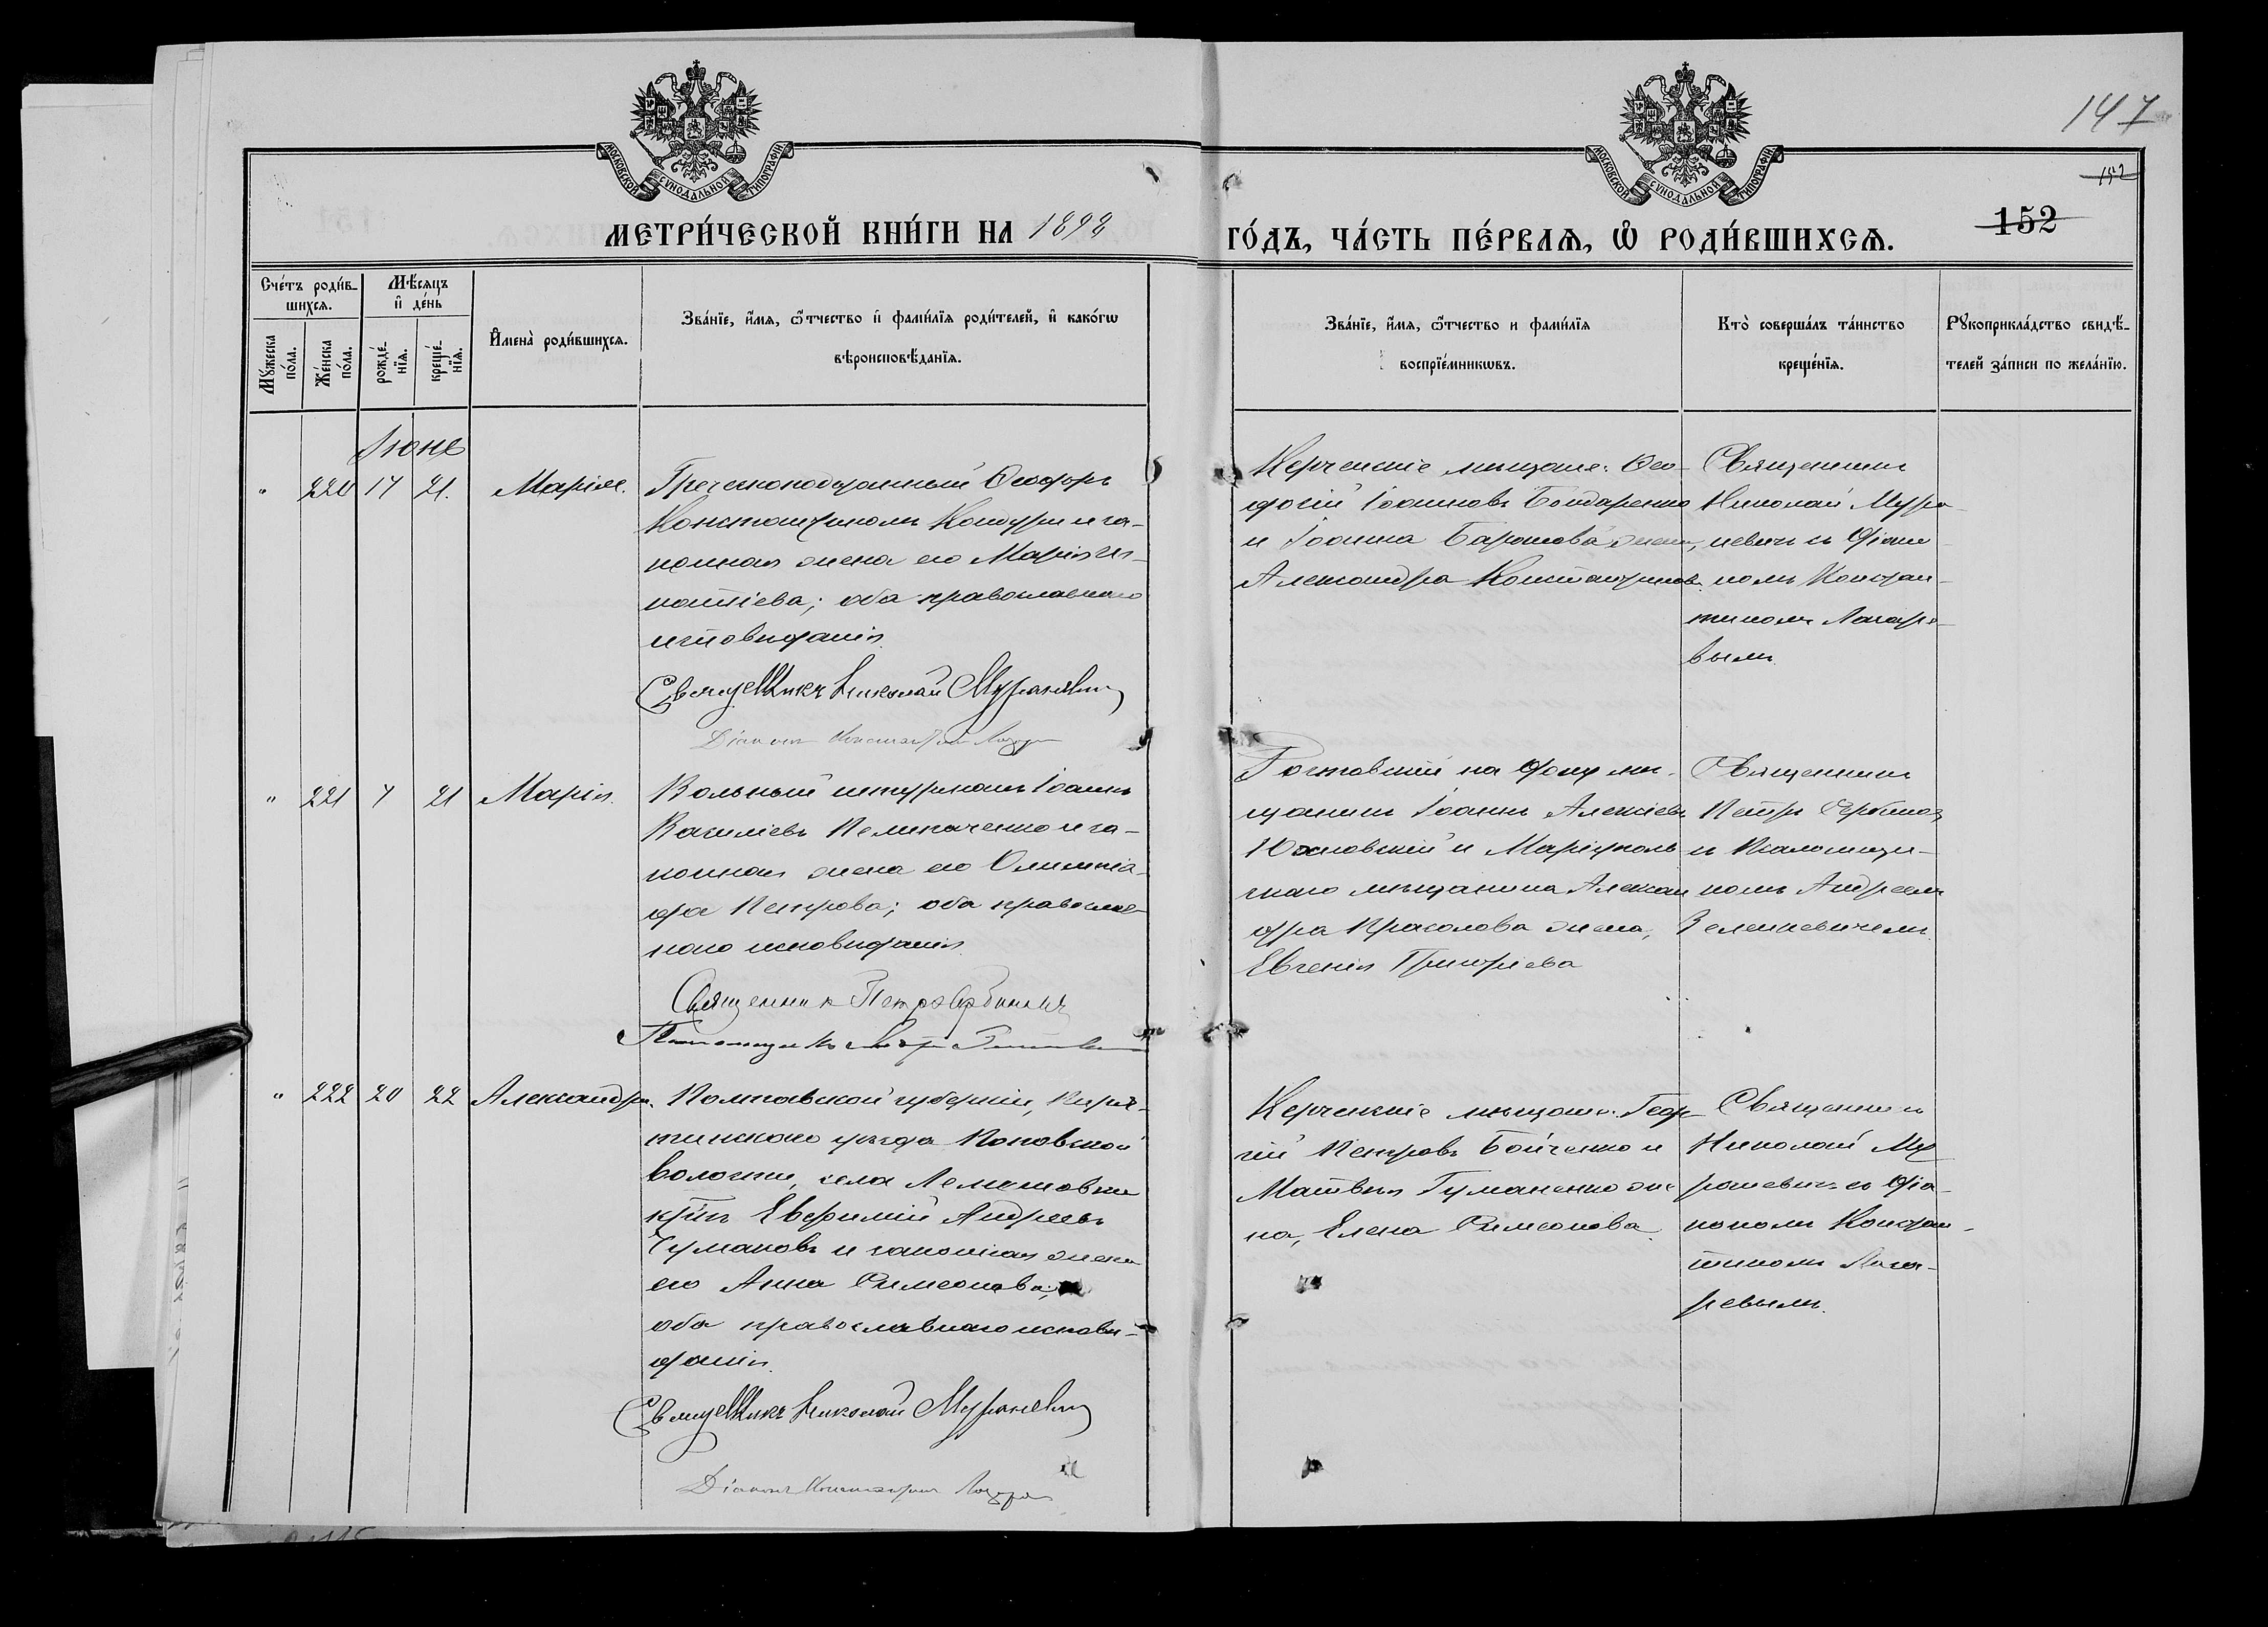 147
152
152
МОСКОВСКОЙ СѴНОДАЛЬНОЙ ТИПОГРАФІИ
МОСКОВСКОЙ СѴНОДАЛЬНОЙ ТИПОГРАФІИ
МЕТРИ́ЧЕСКОЙ КНИ́ГИ НА 1898
ГО́ДЪ, ЧА́СТЬ ПЕ́РВАѦ, Ѡ РОДИ́ВШИХСѦ.
Сче́тъ роди́в-
шихсѧ.
Мꙋ́жеска по́ла.
Же́нска по́ла.
Мѣ́сѧцъ
и҆ де́нь
рожде́-
нїѧ.
креще́-
нїѧ.
И҆мена̀ роди́вшихсѧ.
Зва́нїе, и҆́мѧ, ѻ҆́тчество и҆ фами́лїѧ роди́телей, и҆ како́гѡ
вѣроисповѣ́данїѧ.
Зва́нїе, и҆́мѧ, ѻ҆́тчество и фами́лїѧ
воспрїе́мникѡвъ.
Кто̀ соверша́лъ та́инство
креще́нїѧ.
Рꙋкоприкла́дство свидѣ́-
телей за́писи по жела́нїю.
Іюнь
" 220 17 21. Марія.
Греческоподданный Ѳеодоръ
Константиновъ Кондури и за-
конная жена его Марія Иг-
натіева; оба православнаго
исповѣданія.
Священникъ Николай Мураневич
Діаконъ Константин Лазарев
Керченскіе мѣщане: Ѳео-
досій Іоанновъ Бондаренко
и Іоанна Баранова жена,
Александра Константинова.
Священникъ
Николай Мура-
невичъ съ Діако
номъ Констан-
тиномъ Лазаре-
вымъ.
" 221 7 21 Марія.
Вольный штурманъ Іоаннъ
Василіевъ Пелипаченко и за-
конная жена его Олимпіа-
да Петрова; оба православ-
наго исповѣданія.
Священник Петръ Сербинов
Ростовскій на Дону мѣ-
щанинъ Іоаннъ Алексіевъ
и Маріуполь
скаго мѣщанина Алексан
дра Красолова жена,
Евгенія Григоріева
Священникъ
Петръ Сербинов
съ Псаломщи-
комъ Андреемъ
Зеленкевичемъ.
" 222 20 22 Александра.
Полтавской губерніи, Пиря-
тинскаго уѣзда Поповской
волости, села Лемешовки
кр͠нъ Евфимій Андреевъ
Чумаковъ и законная жена
его Анна Симеонова;
оба православнаго исповѣ-
данія.
Священникъ Николай Мураневич
Діаконъ Константин Лазарев
Керченскіе мѣщане: Геор-
гій Петровъ Бойченко и
Матвѣя Гуманенко же
на, Елена Симеонова.
Священникъ
Николай Му
раневичъ съ Діа-
кономъ Констан-
тиномъ Лаза-
ревымъ.